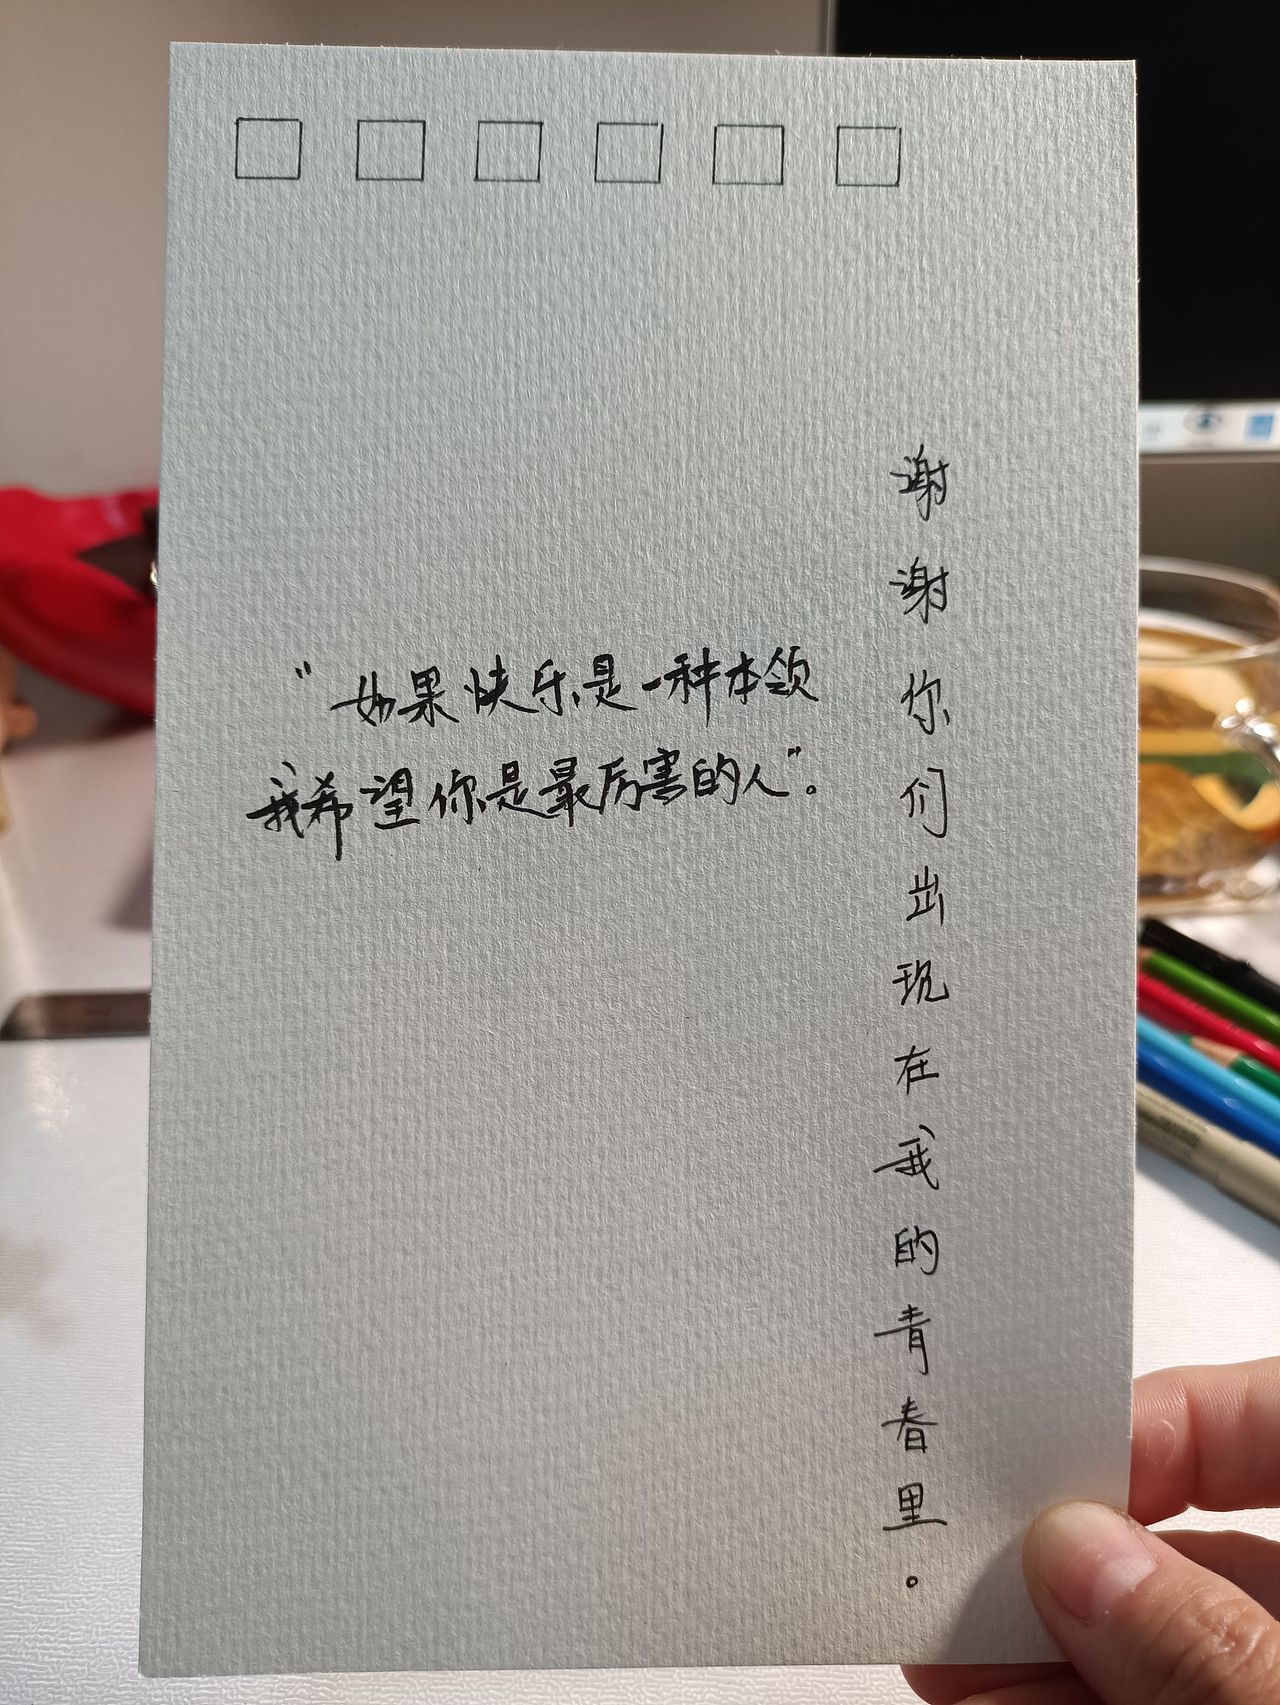 “如果快乐是一种本领
我希望你是最厉害的人”。
谢谢你们出现在我的青春里。